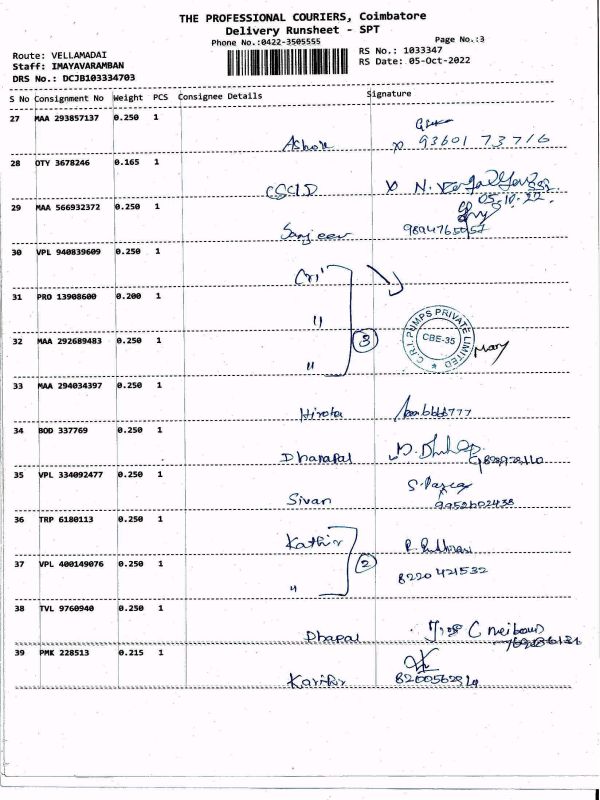 THE PROFESSIONAL COURIERS, Coimbatore
Delivery Runsheet - SPT
Phone No.:0422-3505555 Page No.:3
Route: VELLAMADAI RS No.: 1033347
Staff: IMAYAVARAMBAN RS Date: 05-Oct-2022
DRS No.: DCJB103334703
S No Consignment No Weight PCS Consignee Details Signature
27 MAA 293857137 0.250 1
Ashok 93601 73716
28 OTY 3678246 0.165 1
CSCID N.
05.10.22.
29 MAA 566932372 0.250 1
Sanjeev
30 VPL 940839609 0.250 1
Cri
31 PRO 13908600 0.200 1
"
32 MAA 292689483 0.250 1
3 C.R.I. PUMPS PRIVATE LIMITED
CBE-35 Mary
"
33 MAA 294034397 0.250 1
34 BOD 337769 0.250 1
Dhanapal
35 VPL 334092477 0.250 1
Sivan
9952602438
36 TRP 6180113 0.250 1
Kathir
37 VPL 400149076 0.250 1
2
" 8220421532
38 TVL 9760940 0.250 1
39 PMK 228513 0.215 1